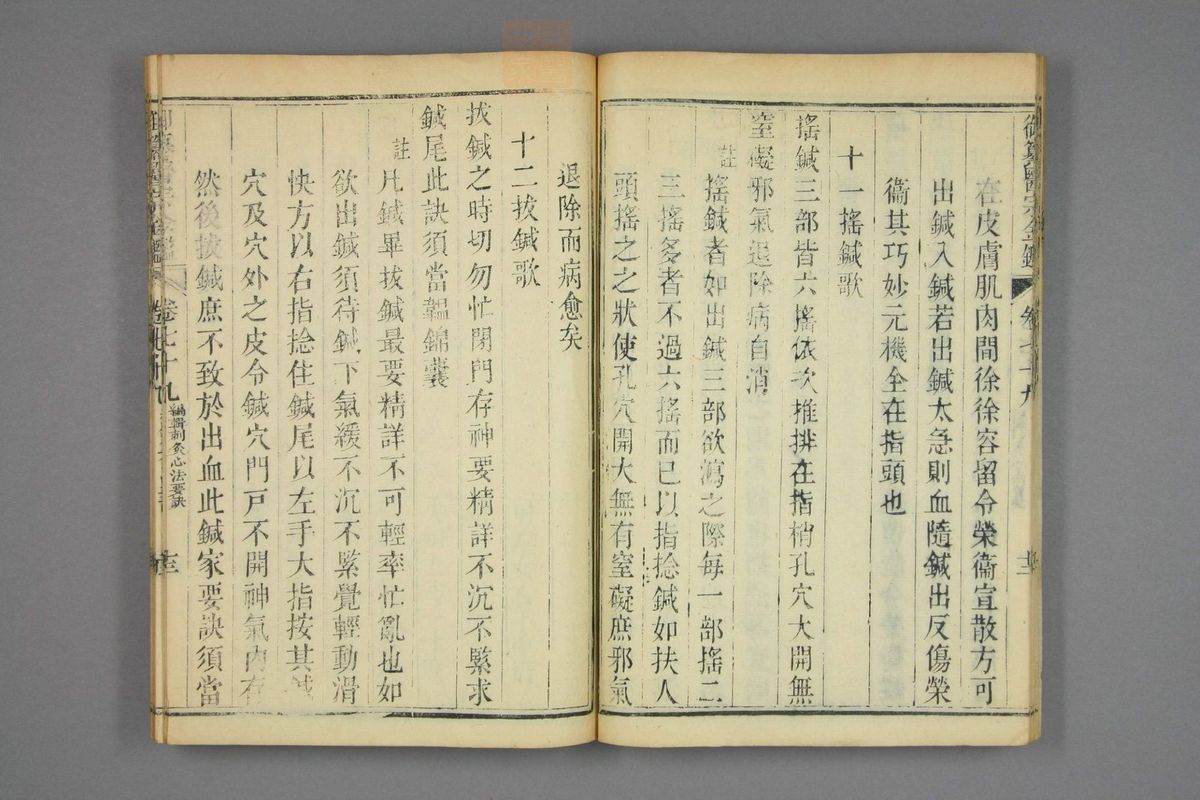 御纂醫宗金鑑 卷七十九
在皮膚肌肉間徐徐容留令榮衞宣散方可
出鍼入鍼若出鍼太急則血隨鍼出反傷榮
衞其巧妙元機全在指頭也
十一搖鍼歌
搖鍼三部皆六搖依次推排在指梢孔穴大開無
窒礙邪氣退除病自消
註
搖鍼者如出鍼三部欲瀉之際每一部搖二
三搖多者不過六搖而已以指捻鍼如扶人
頭搖之之狀使孔穴開大無有窒礙庶邪氣
退除而病愈矣
十二拔鍼歌
拔鍼之時切勿忙閉門存神要精詳不沉不緊求
鍼尾此訣須當韞錦囊
註
凡鍼畢拔鍼最要精詳不可輕率忙亂也如
欲出鍼須待鍼下氣緩不沉不緊覺輕動滑
快方以右指捻住鍼尾以左手大指按其鍼
穴及穴外之皮令鍼穴門戸不開神氣内存
然後拔鍼庶不致於出血此鍼家要訣須當
卷七十九
編輯刺灸心法要訣